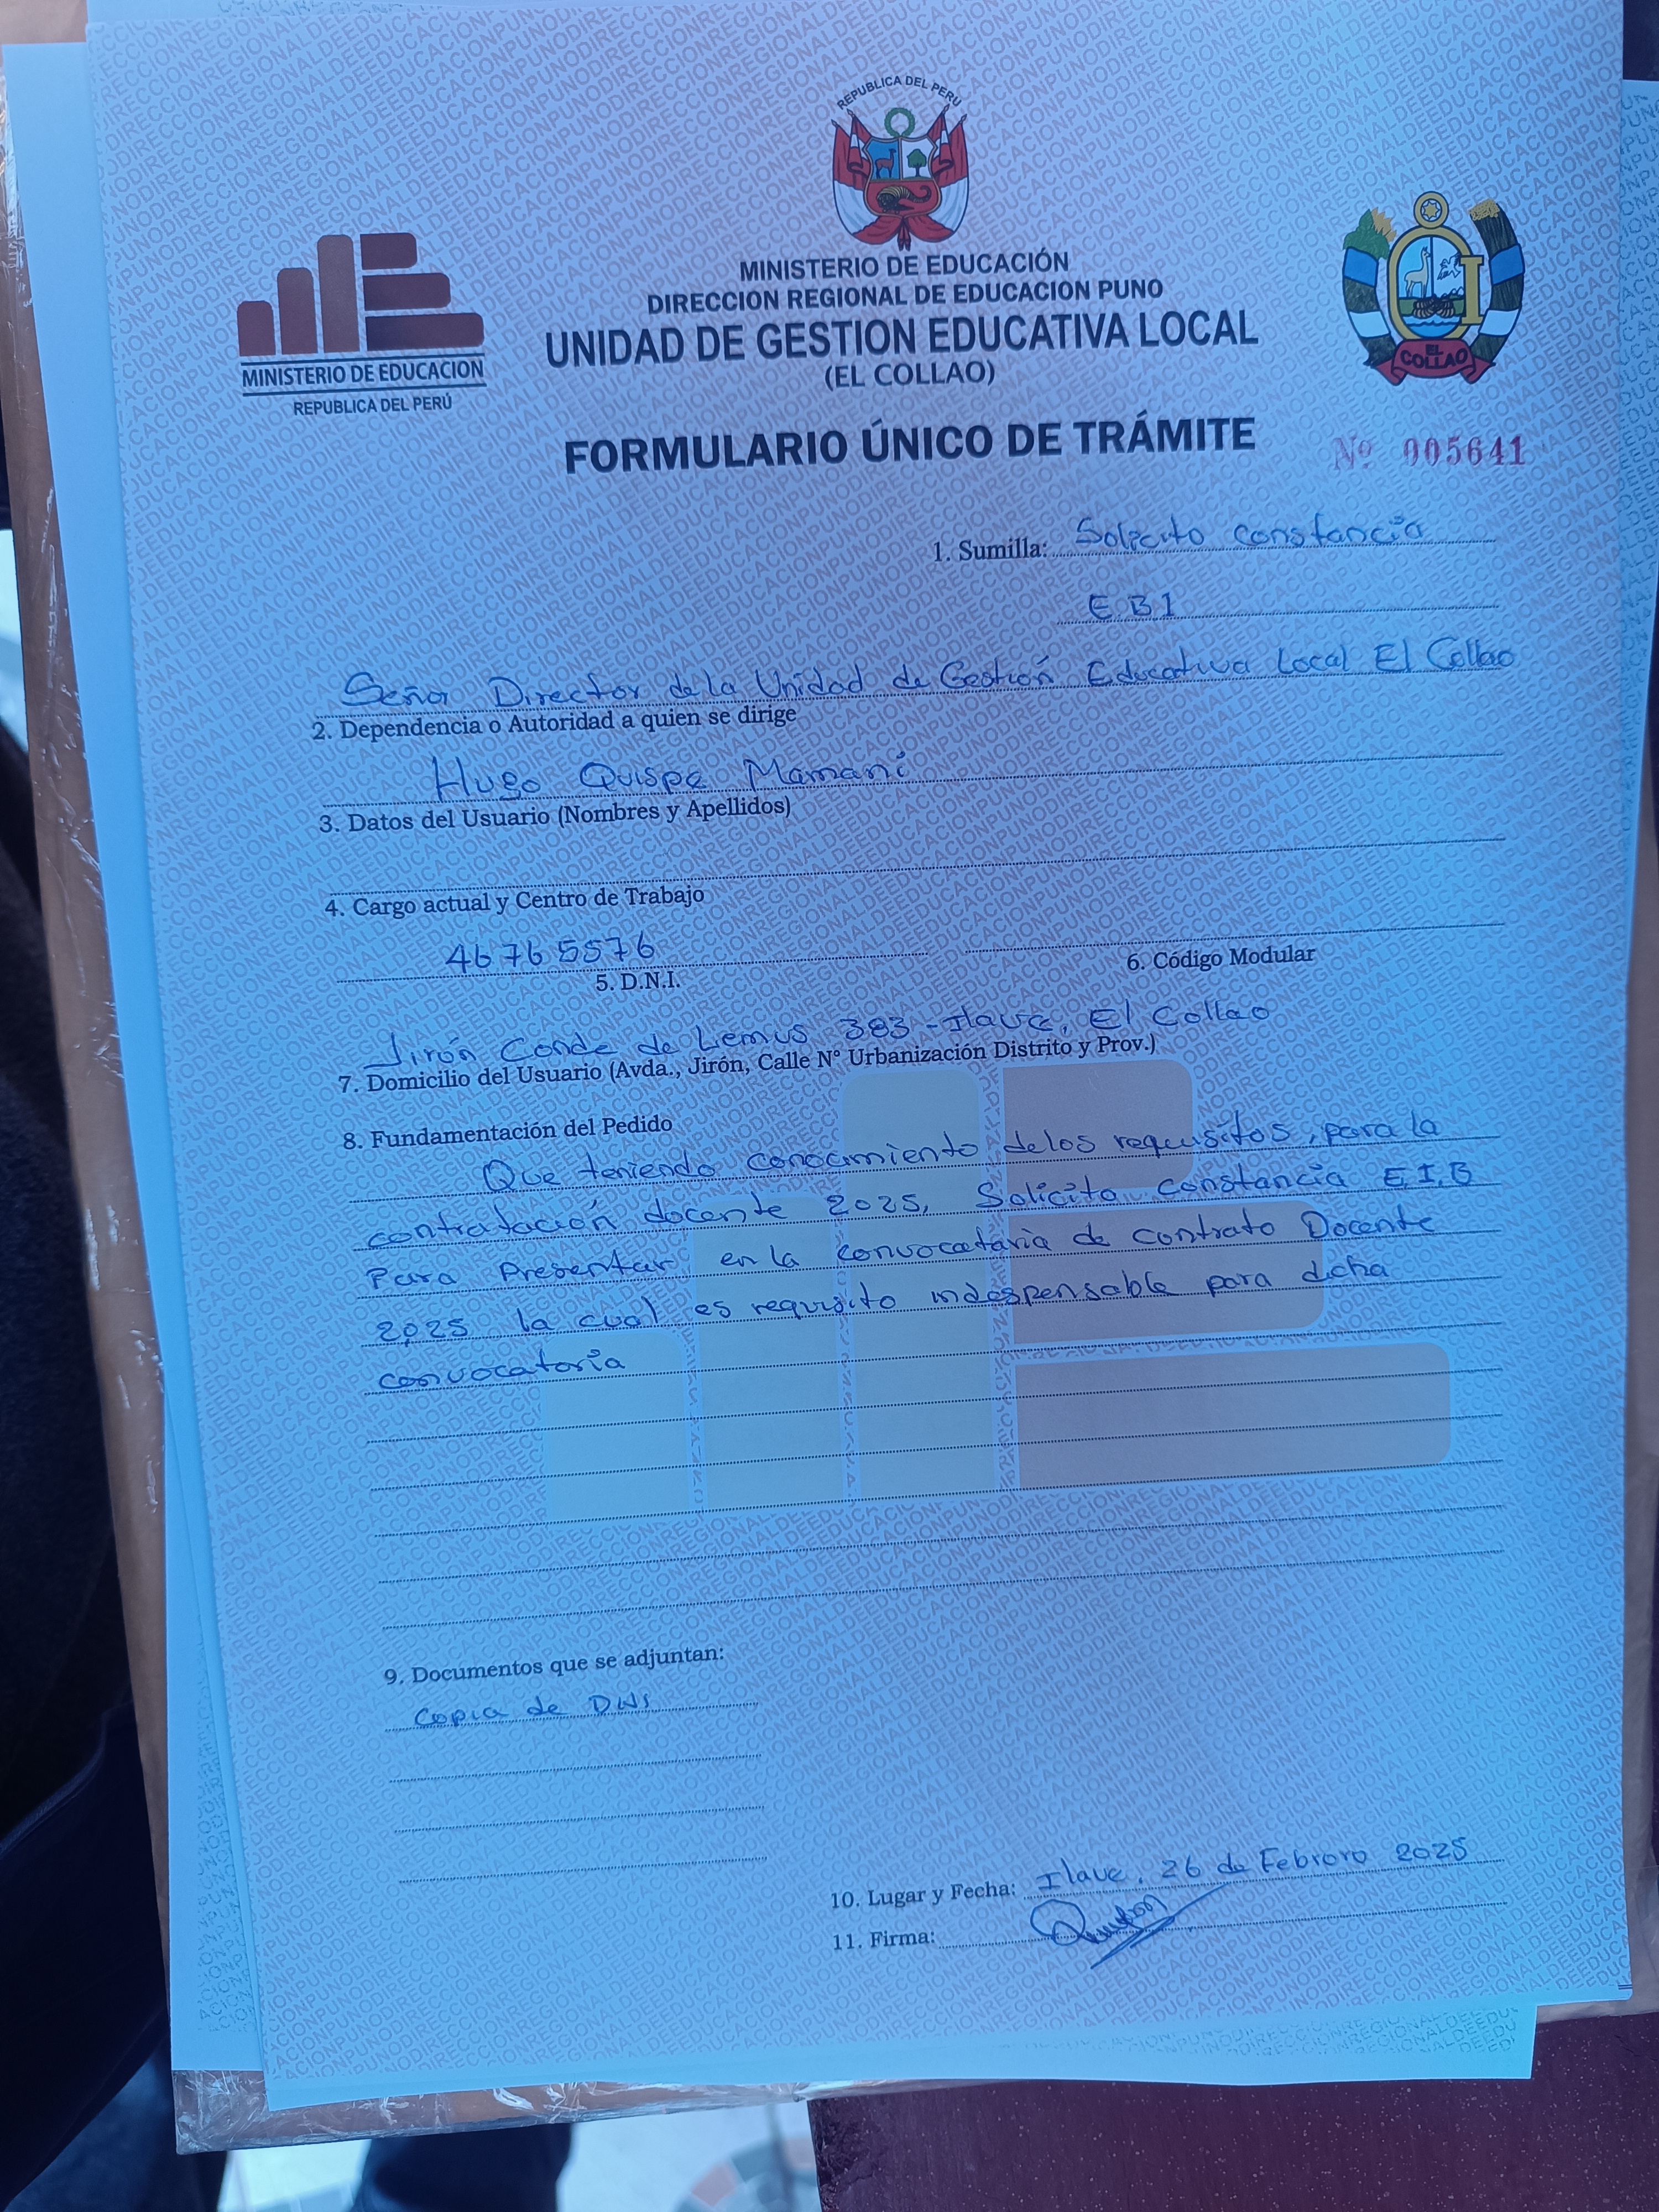 REPUBLICA DEL PERÚ
MINISTERIO DE EDUCACIÓN
DIRECCION REGIONAL DE EDUCACION PUNO
UNIDAD DE GESTION EDUCATIVA LOCAL
(EL COLLAO)
MINISTERIO DE EDUCACION
REPUBLICA DEL PERÚ
EL COLLAO
FORMULARIO ÚNICO DE TRÁMITE
Nº 005641
1. Sumilla: Solicito constancia
E.B.I
Señor Director de la Unidad de Gestión Educativa Local El Collao
2. Dependencia o Autoridad a quien se dirige
Hugo Quispe Mamani
3. Datos del Usuario (Nombres y Apellidos)
4. Cargo actual y Centro de Trabajo
46765576
5. D.N.I.
6. Código Modular
Jirón Conde de Lemus 383 - Ilave, El Collao
7. Domicilio del Usuario (Avda., Jirón, Calle N° Urbanización Distrito y Prov.)
8. Fundamentación del Pedido
Que teniendo conocimiento de los requisitos, para la
contratación docente 2025, Solicito constancia E.I.B
Para Presentar en la convocatoria de contrato Docente
2025 la cual es requisito indespensable para dicha
convocatoria
9. Documentos que se adjuntan:
Copia de DNI
10. Lugar y Fecha: Ilave, 26 de Febrero 2025
11. Firma: